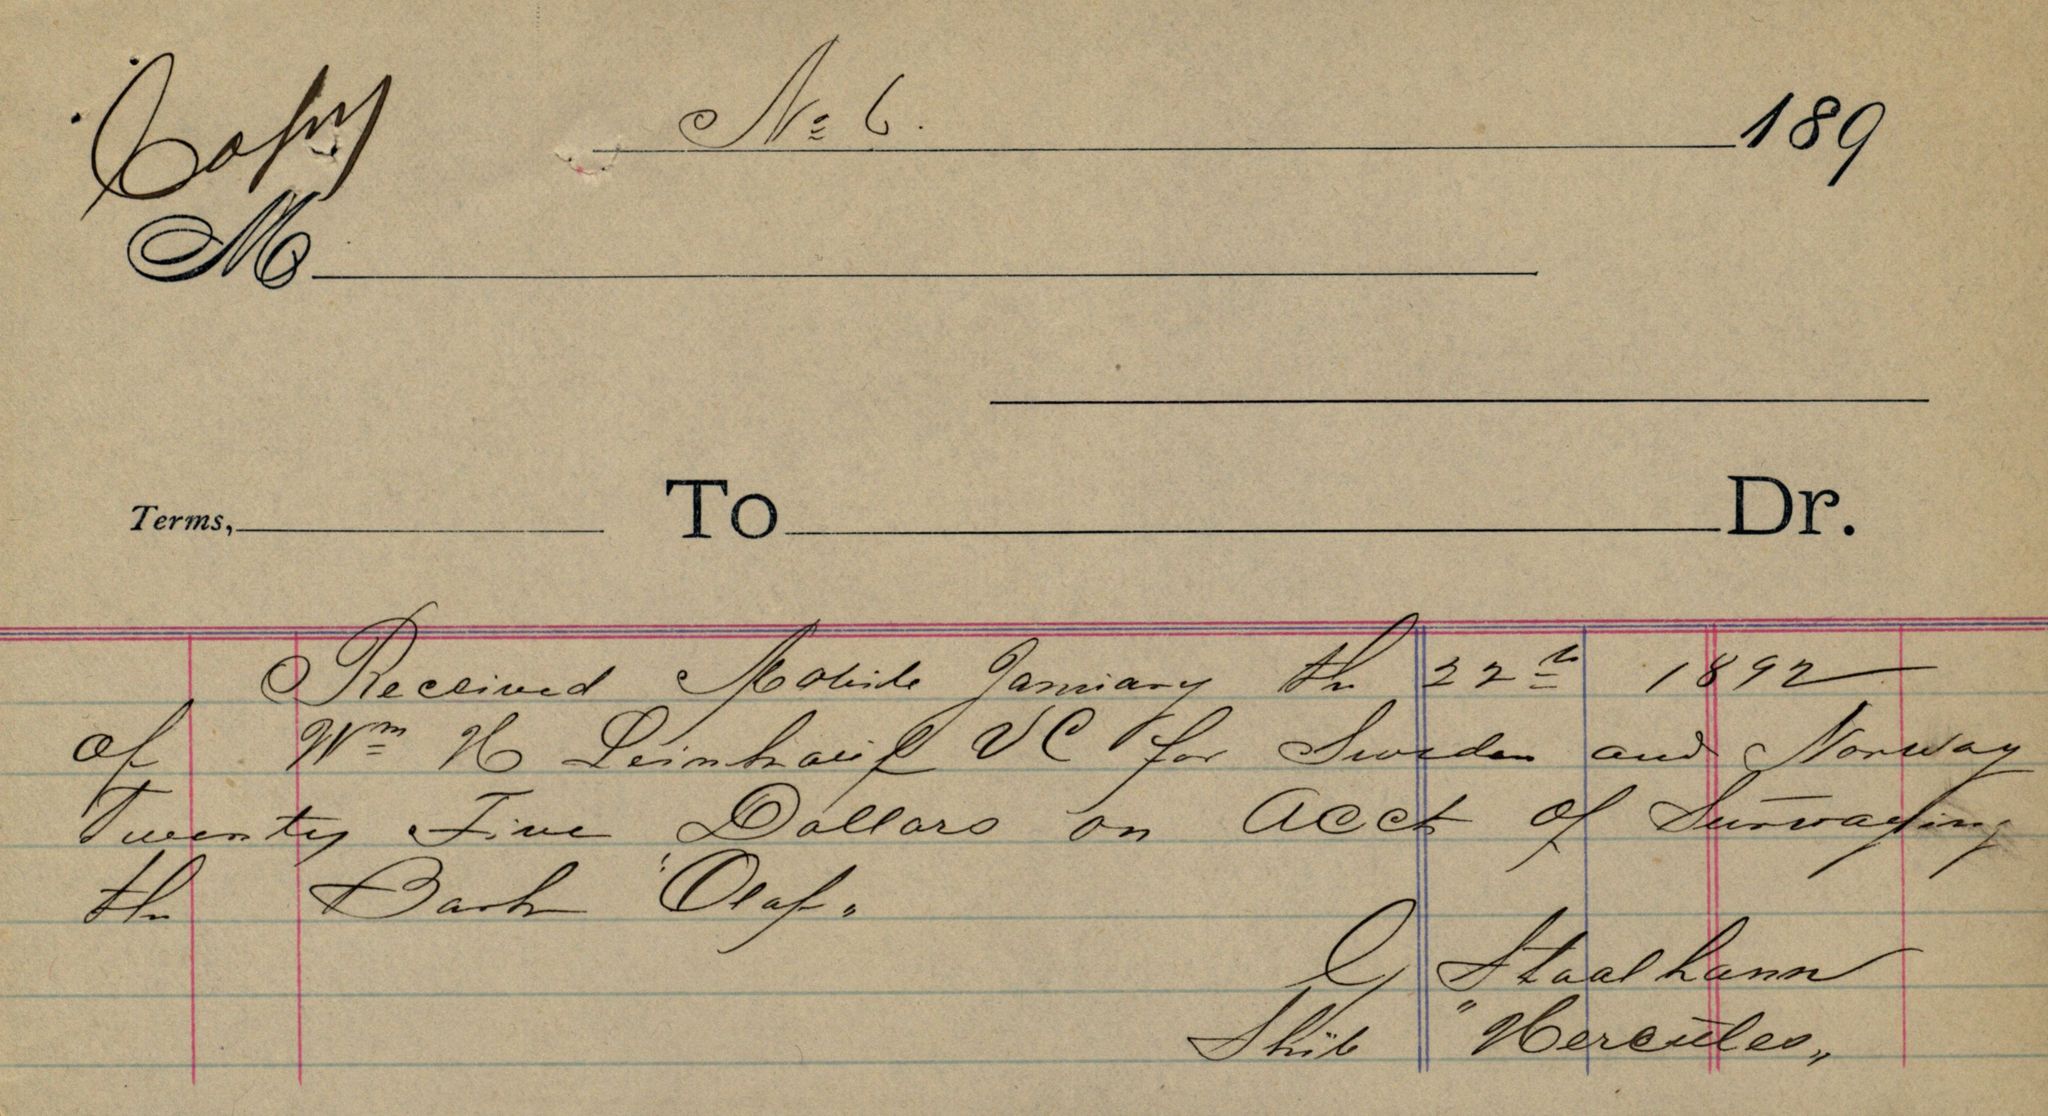 Copy
No 6. 189
M
Terms, To Dr.
Received Mobile January the 22n 1892
of Wm H Leinkauf VC for Sweden and Norway
Twenty Five Dollars on Acct of Survaying
the Bark "Olaf"
G Staalhann
Ship "Hercules"